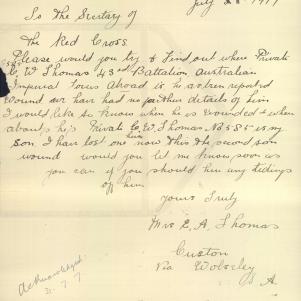 July 28 1917
To the Srectary of
The Red Cross
Please would you try & Find out where Private
C. W Thomas 43rd Battalion Australian
Imperial Forces Abroad is he as ben reported
Wound we hair had no further details of him
I would like to know when he is Wounded & when
abouts he is Private C, W, Thomas No 585 is my
son I hair lost one now this the second son
wound would you let me know soon as
you can if you should hair any tidings
off him
Yours Truly
Mrs E. A. Thomas
Custon
Via Wolseley
S A.
Acknowledged
31. 7. 7